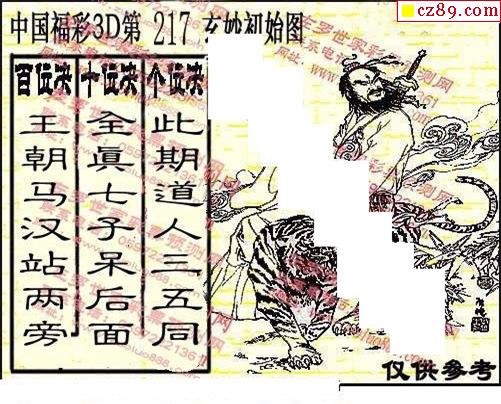 cz89.com
中国福彩3D第 217 玄妙初始图
百位决
王朝马汉站两旁
十位决
全真七子呆后面
个位决
此期道人三五同
仅供参考